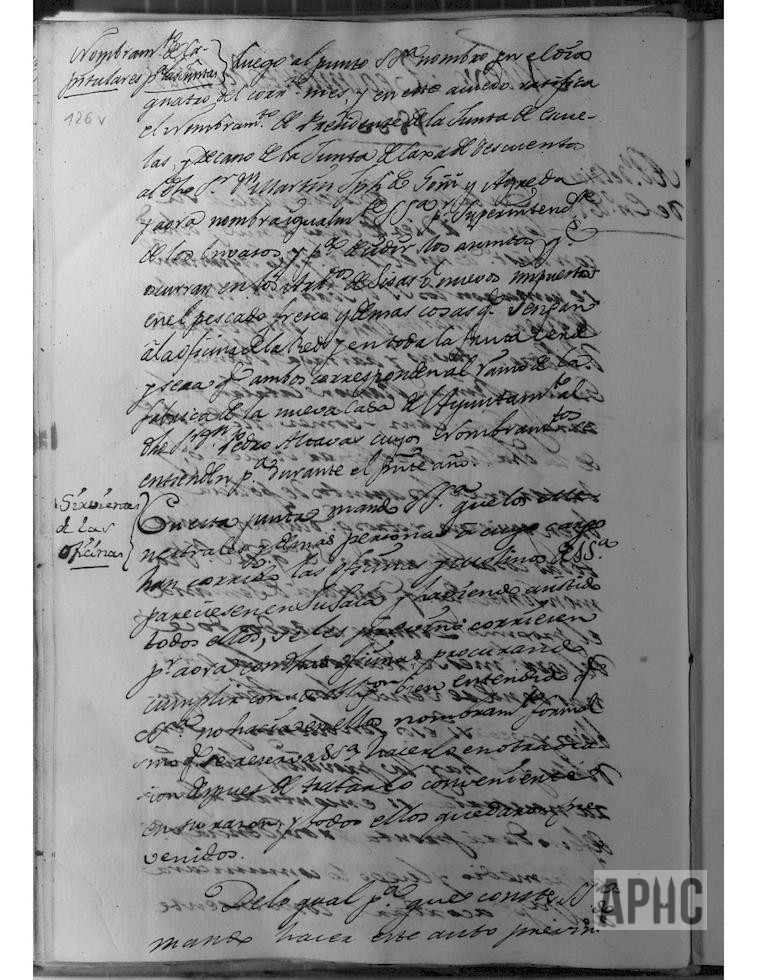 Nombram.to de Ca-
pitulares p.a asumtos
126 v
luego al punto S.S.a nombro en el dia
quatro del corr.te mes, y en este acuerdo ratifica
el Nombram.to de Presidente de la Junta de Escue-
las, y Decano de la Junta de Caxa de Descuento
al dho S.r D.n Martin Jph de Goñi y Agreda
y aora nombra igualm.te S.S.a p.r Superintend.te
de los embasos, y p.a decidir los asumtos q.e
ocurran en los de Sisas o nuevos impuestos
en el pescado fresco y demas cosas q.e vengan
a la oficina de la Red y en toda la fruta verde
y seca q.e ambos corresponden al Ramo de la
fabrica de la nueva Casa de Ayuntam.to al
dho S.r D.n Pedro cuyos Nombram.tos se
entienden p.a durante el pnte año.
Sirvientes
de las
oficinas
En esta junta mando S.S.a que los
y demas personas a cuyo cargo
han corrido las oficinas de S.S.a
pareciesen en su Sala y haviendo asistido
todos ellos, se les previno corriesen
p.r aora con dhas oficinas procurando
cumplir con bien entendido q.e
S.S.a no hacia en ellos nombram.to formal
sino q.e se reserva S.S.a hacerlo en otra oca-
sion despues de tratar lo conveniente
en su razon, y todos ellos quedaron pre-
venidos.
De lo qual p.a que conste S.S.a
mando hacer este auto
APHC